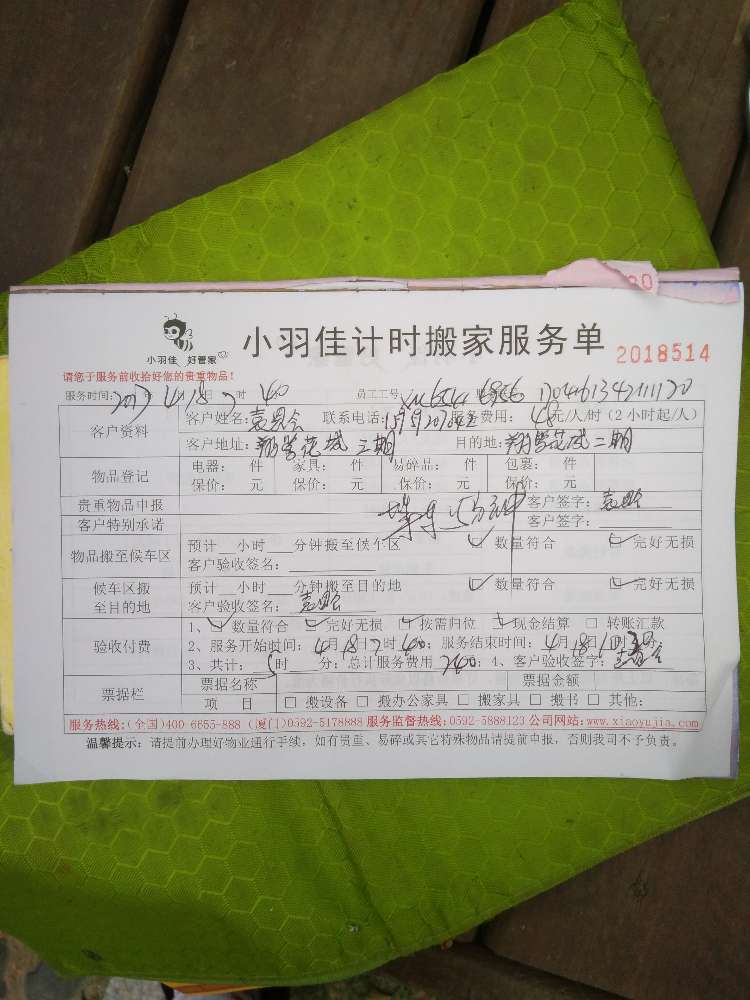 小羽佳 好管家
小羽佳计时搬家服务单 2018514
请您于服务前收拾好您的贵重物品!
服务时间: 2017年4月18日 7时40 员工工号
客户资料 客户姓名: 联系电话: 服务费用: 48元/人/时(2小时起/人)
客户地址: 翔鹭花城三期 目的地: 翔鹭花城二期
物品登记 电器: 件 家具: 件 易碎品: 件 包裹: 件
保价: 元 保价: 元 保价: 元 保价: 元
贵重物品申报 客户签字:
客户特别承诺 客户签字:
物品搬至候车区 预计__小时__分钟搬至候车区 数量符合 完好无损
客户验收签名:
候车区搬至目的地 预计__小时__分钟搬至目的地 数量符合 完好无损
客户验收签名:
验收付费 1、 数量符合 完好无损 按需归位 现金结算 □ 转账汇款
2、服务开始时间: 4月18日7时40; 服务结束时间: 4月18日
3、共计: 5时 分; 总计服务费用 ; 4、客户验收签字:
票据栏 票据名称 票据金额
项 目 □ 搬设备 □ 搬办公家具 □ 搬家具 □ 搬书 □ 其他:
服务热线:(全国)400-6655-888 (厦门)0592-5178888 服务监督热线:0592-5888123 公司网站:www.xiaoyujia.com
温馨提示: 请提前办理好物业通行手续,如有贵重、易碎或其它特殊物品请提前申报,否则我司不予负责。